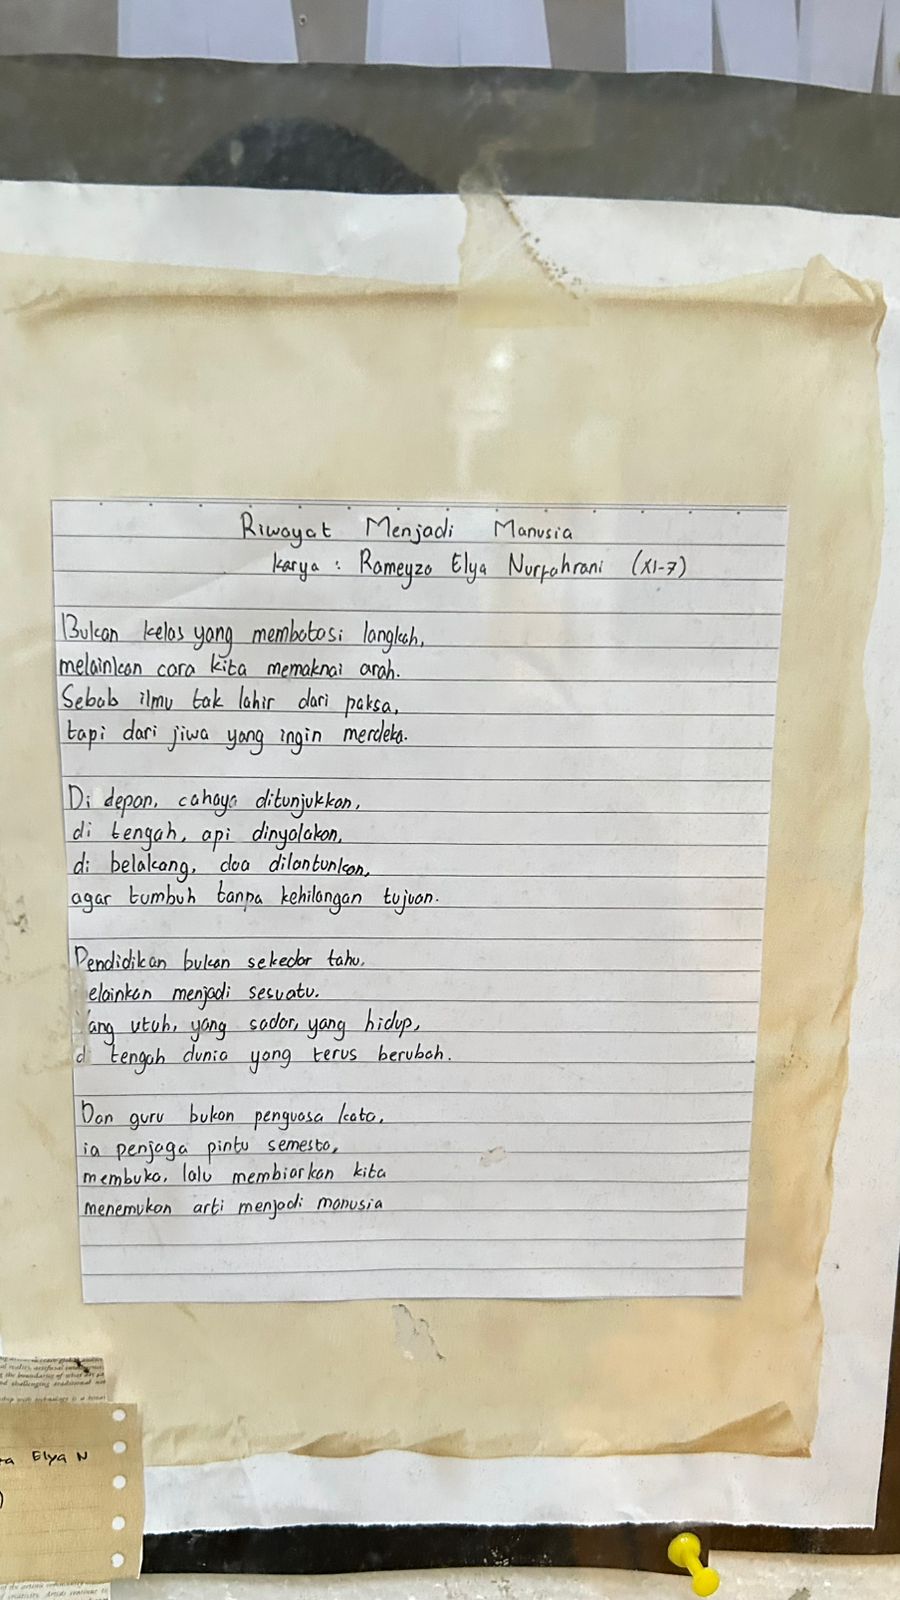 Riwayat Menjadi Manusia
Karya : Rameyza Elya Nurfahrani (XI-7)
Bukan kelas yang membatasi langkah,
melainkan cara kita memaknai arah.
Sebab ilmu tak lahir dari paksa,
tapi dari jiwa yang ingin merdeka.
Di depan, cahaya ditunjukkan,
di tengah, api dinyalakan,
di belakang, doa dilantunkan,
agar tumbuh tanpa kehilangan tujuan.
Pendidikan bukan sekedar tahu,
elainkan menjadi sesuatu.
Yang utuh, yang sadar, yang hidup,
d tengah dunia yang terus berubah.
Dan guru bukan penguasa kata,
ia penjaga pintu semesta,
membuka, lalu membiarkan kita
menemukan arti menjadi manusia
Elya N